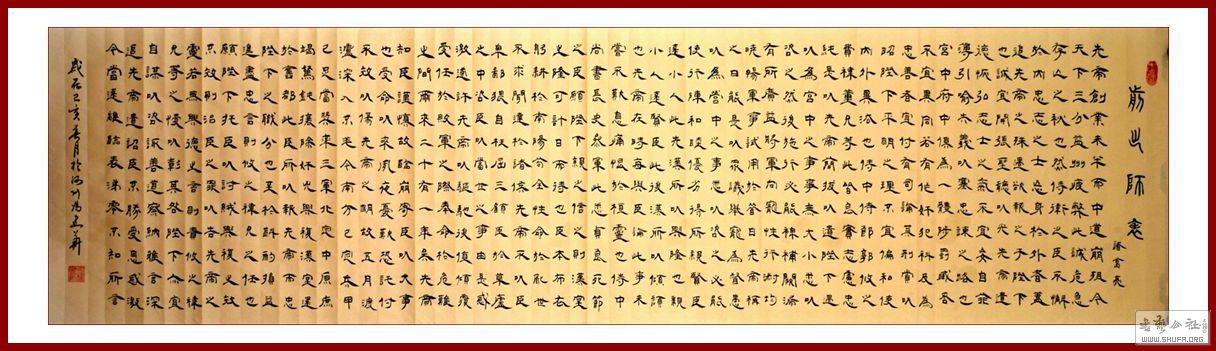 前出師表
諸葛亮
先帝創業未半而中道崩殂今
天下三分益州疲弊此誠危急
存亡之秋也然侍衛之臣不懈
於內忠志之士忘身於外者蓋
追先帝之殊遇欲報之于陛下
也誠宜開張聖聽以光先帝遺
德恢弘志士之氣不宜妄自菲
薄引喻失義以塞忠諫之路也
宮中府中俱為一體陟罰臧否
不宜異同若有作奸犯科及為
忠善者宜付有司論其刑賞以
昭陛下平明之理不宜偏私使
內外異法也侍中侍郎郭攸之
費禕董允等此皆良實志慮忠
純是以先帝簡拔以遺陛下愚
以為宮中之事事無大小悉以
咨之然後施行必能裨補闕漏
有所廣益將軍向寵性行淑均
曉暢軍事試用於昔日先帝稱
之曰能是以眾議舉寵為督愚
以為營中之事悉以咨之必能
使行陣和睦優劣得所親賢臣
遠小人此先漢所以興隆也親
小人遠賢臣此後漢所以傾頹
也先帝在時每與臣論此事未
嘗不歎息痛恨於桓靈也侍中
尚書長史參軍此悉貞良死節
之臣願陛下親之信之則漢室
之隆可計日而待也臣本布衣
躬耕於南陽苟全性命於亂世
不求聞達於諸侯先帝不以臣
卑鄙猥自枉屈三顧臣於草廬
之中咨臣以當世之事由是感
激遂許先帝以驅馳後值傾覆
受任於敗軍之際奉命於危難
之間爾來二十有一年矣先帝
知臣謹慎故臨崩寄臣以大事
也受命以來夙夜憂歎恐託付
不效以傷先帝之明故五月渡
瀘深入不毛今南方已定兵甲
已足當獎率三軍北定中原庶
竭駑鈍攘除奸兇興復漢室還
於舊都此臣所以報先帝而忠
陛下之職分也至於斟酌損益
進盡忠言則攸之禕允之任也
願陛下託臣以討賊興復之效
不效則治臣之罪以告先帝之
靈若無興德之言則責攸之禕
允等之慢以彰其咎陛下亦宜
自謀以咨諏善道察納雅言深
追先帝遺詔臣不勝受恩感激
今當遠離臨表涕零不知所言
歲在己亥春月於
WWW.SHUFA.ORG